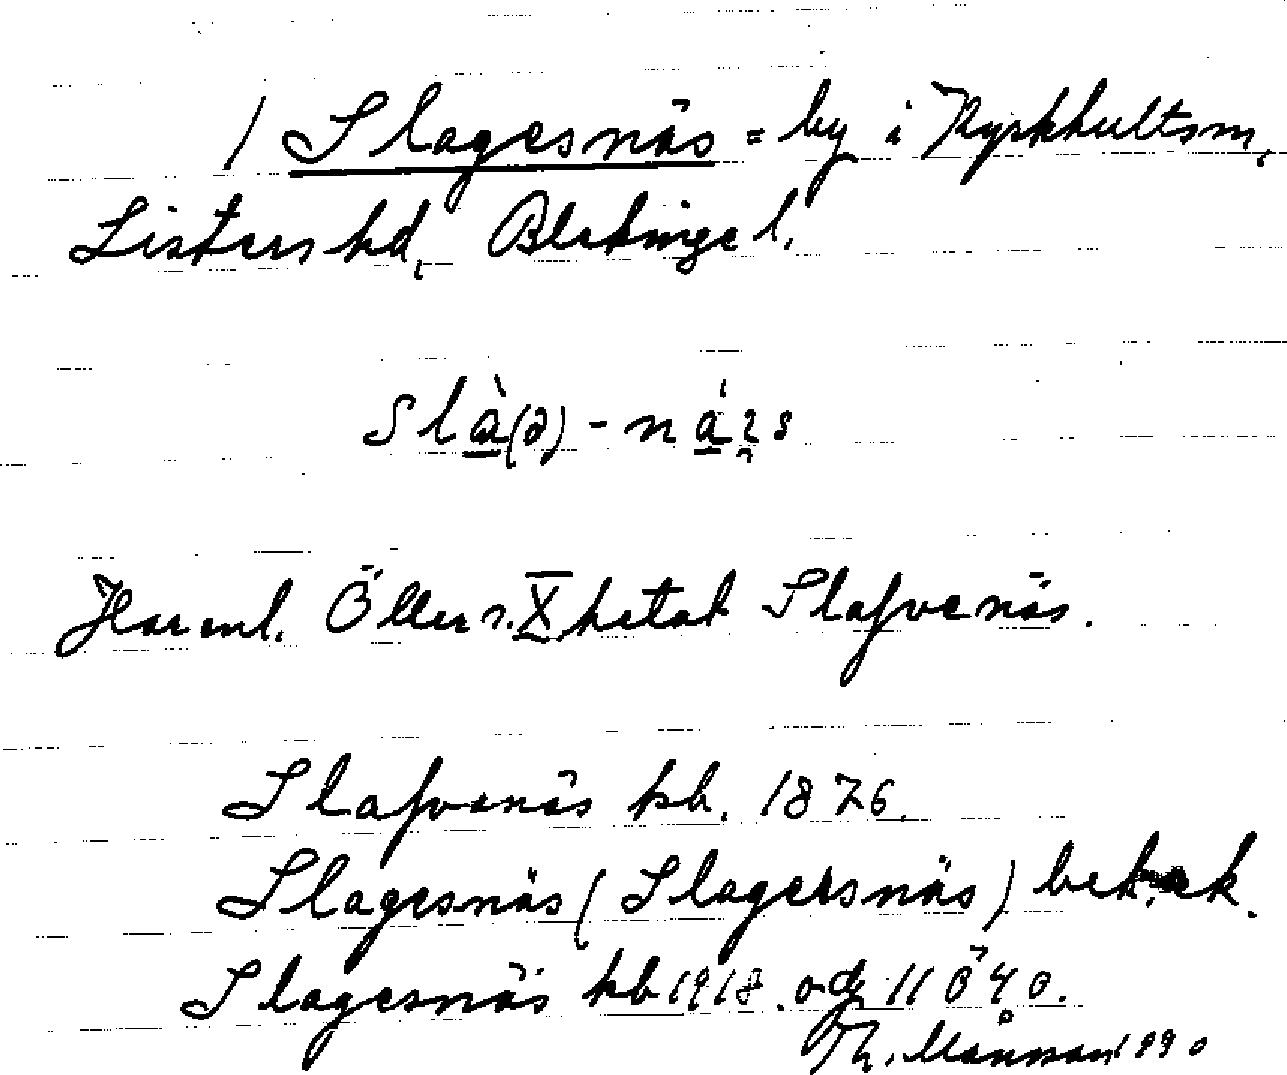 / Slagesnäs = by i Kyrkhultsm,
Listers hd, Blekinge l.
Slà(ə)-ná
Öller s. X hetat Slafvenäs.
Slafvenäs kb. 1876.
Slagesnäs (Slagersnäs) bek.
Slagesnäs kb 1918. og 11 Ö 40.
Th. Månsson 1990